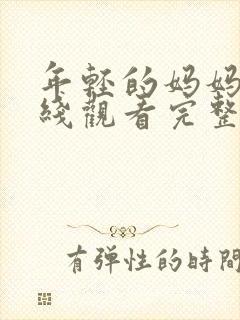 年轻的妈妈
线觀看完整
有弹性的時間